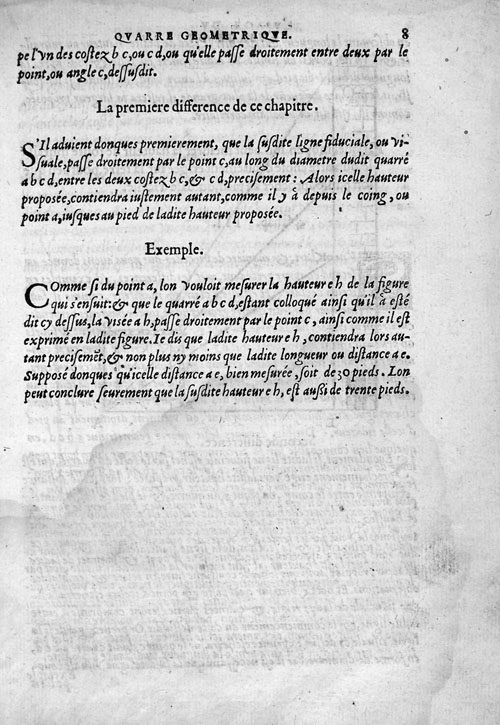 QVARRE GEOMETRIQVE. 8
pe l'vn des costez b c, ou c d, ou qu'elle passe droitement entre deux par le
point, ou angle c, dessusdit.
La premiere difference de ce chapitre.
S'Il aduient donques premierement, que la susdite ligne fiduciale, ou vi-
suale, passe droitement par le point c, au long du diametre dudit quarré
a b c d, entre les deux costez b c, & c d, precisement : Alors icelle hauteur
proposée, contiendra iustement autant, comme il y à depuis le coing, ou
point a, iusques au pied de ladite hauteur proposée.
Exemple.
Comme si du point a, lon vouloit mesurer la hauteur e h de la figure
qui s'ensuit: & que le quarré a b c d, estant colloqué ainsi qu'il à esté
dit cy dessus, la visée a h, passe droitement par le point c, ainsi comme il est
exprimé en ladite figure. Ie dis que ladite hauteur e h, contiendra lors au-
tant precisemẽt, & non plus ny moins que ladite longueur ou distance a e.
Supposé donques qu'icelle distance a e, bien mesurée, soit de 30 pieds. Lon
peut conclure seurement que la susdite hauteur e h, est aussi de trente pieds.